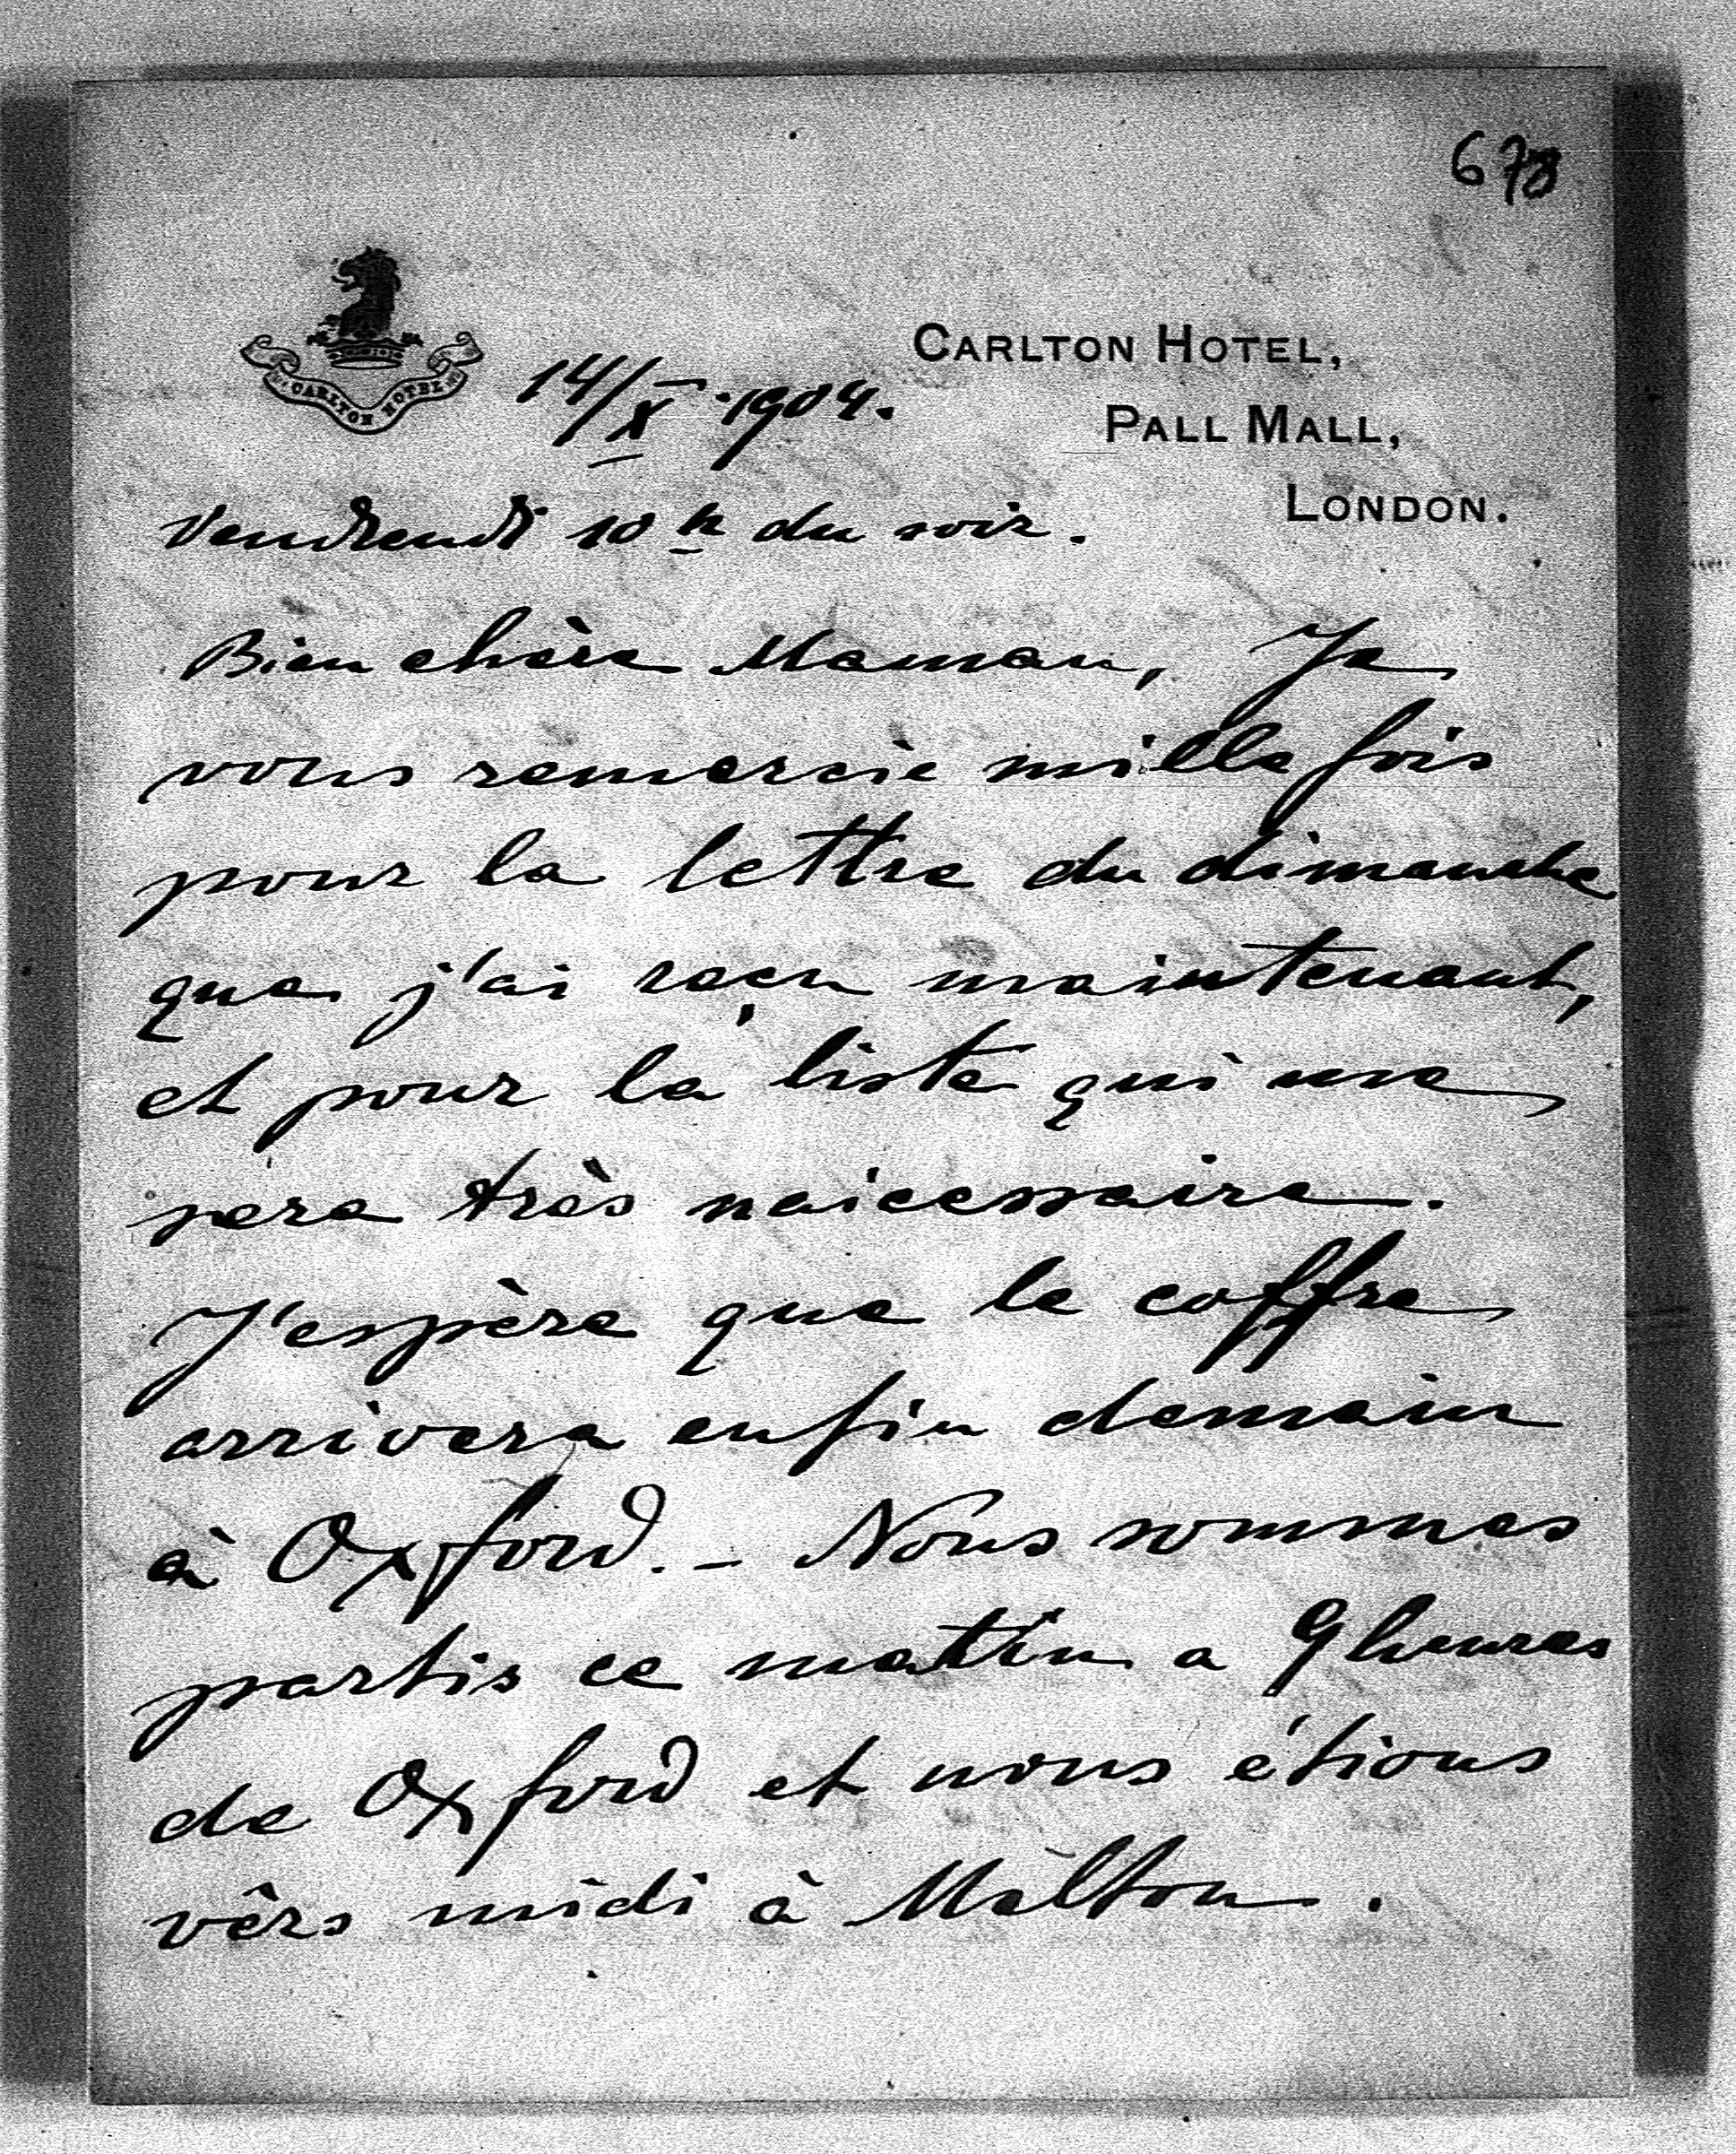 678
CARLTON HOTEL,
PALL MALL,
LONDON.
CARLTON HOTEL
14/X. 1904.
Vendredi 10 h du soir.
Bien chère Maman, Je
vous remercie mille fois
pour la lettre du dimanche
que j'ai reçu maintenant,
et pour la liste qui me
sera très naicessaire.
J'espère que le coffre
arrivera enfin demain
à Oxford. - Nous sommes
partis ce matin a 9 heures
de Oxford et nous étions
vêrs midi à Melton.